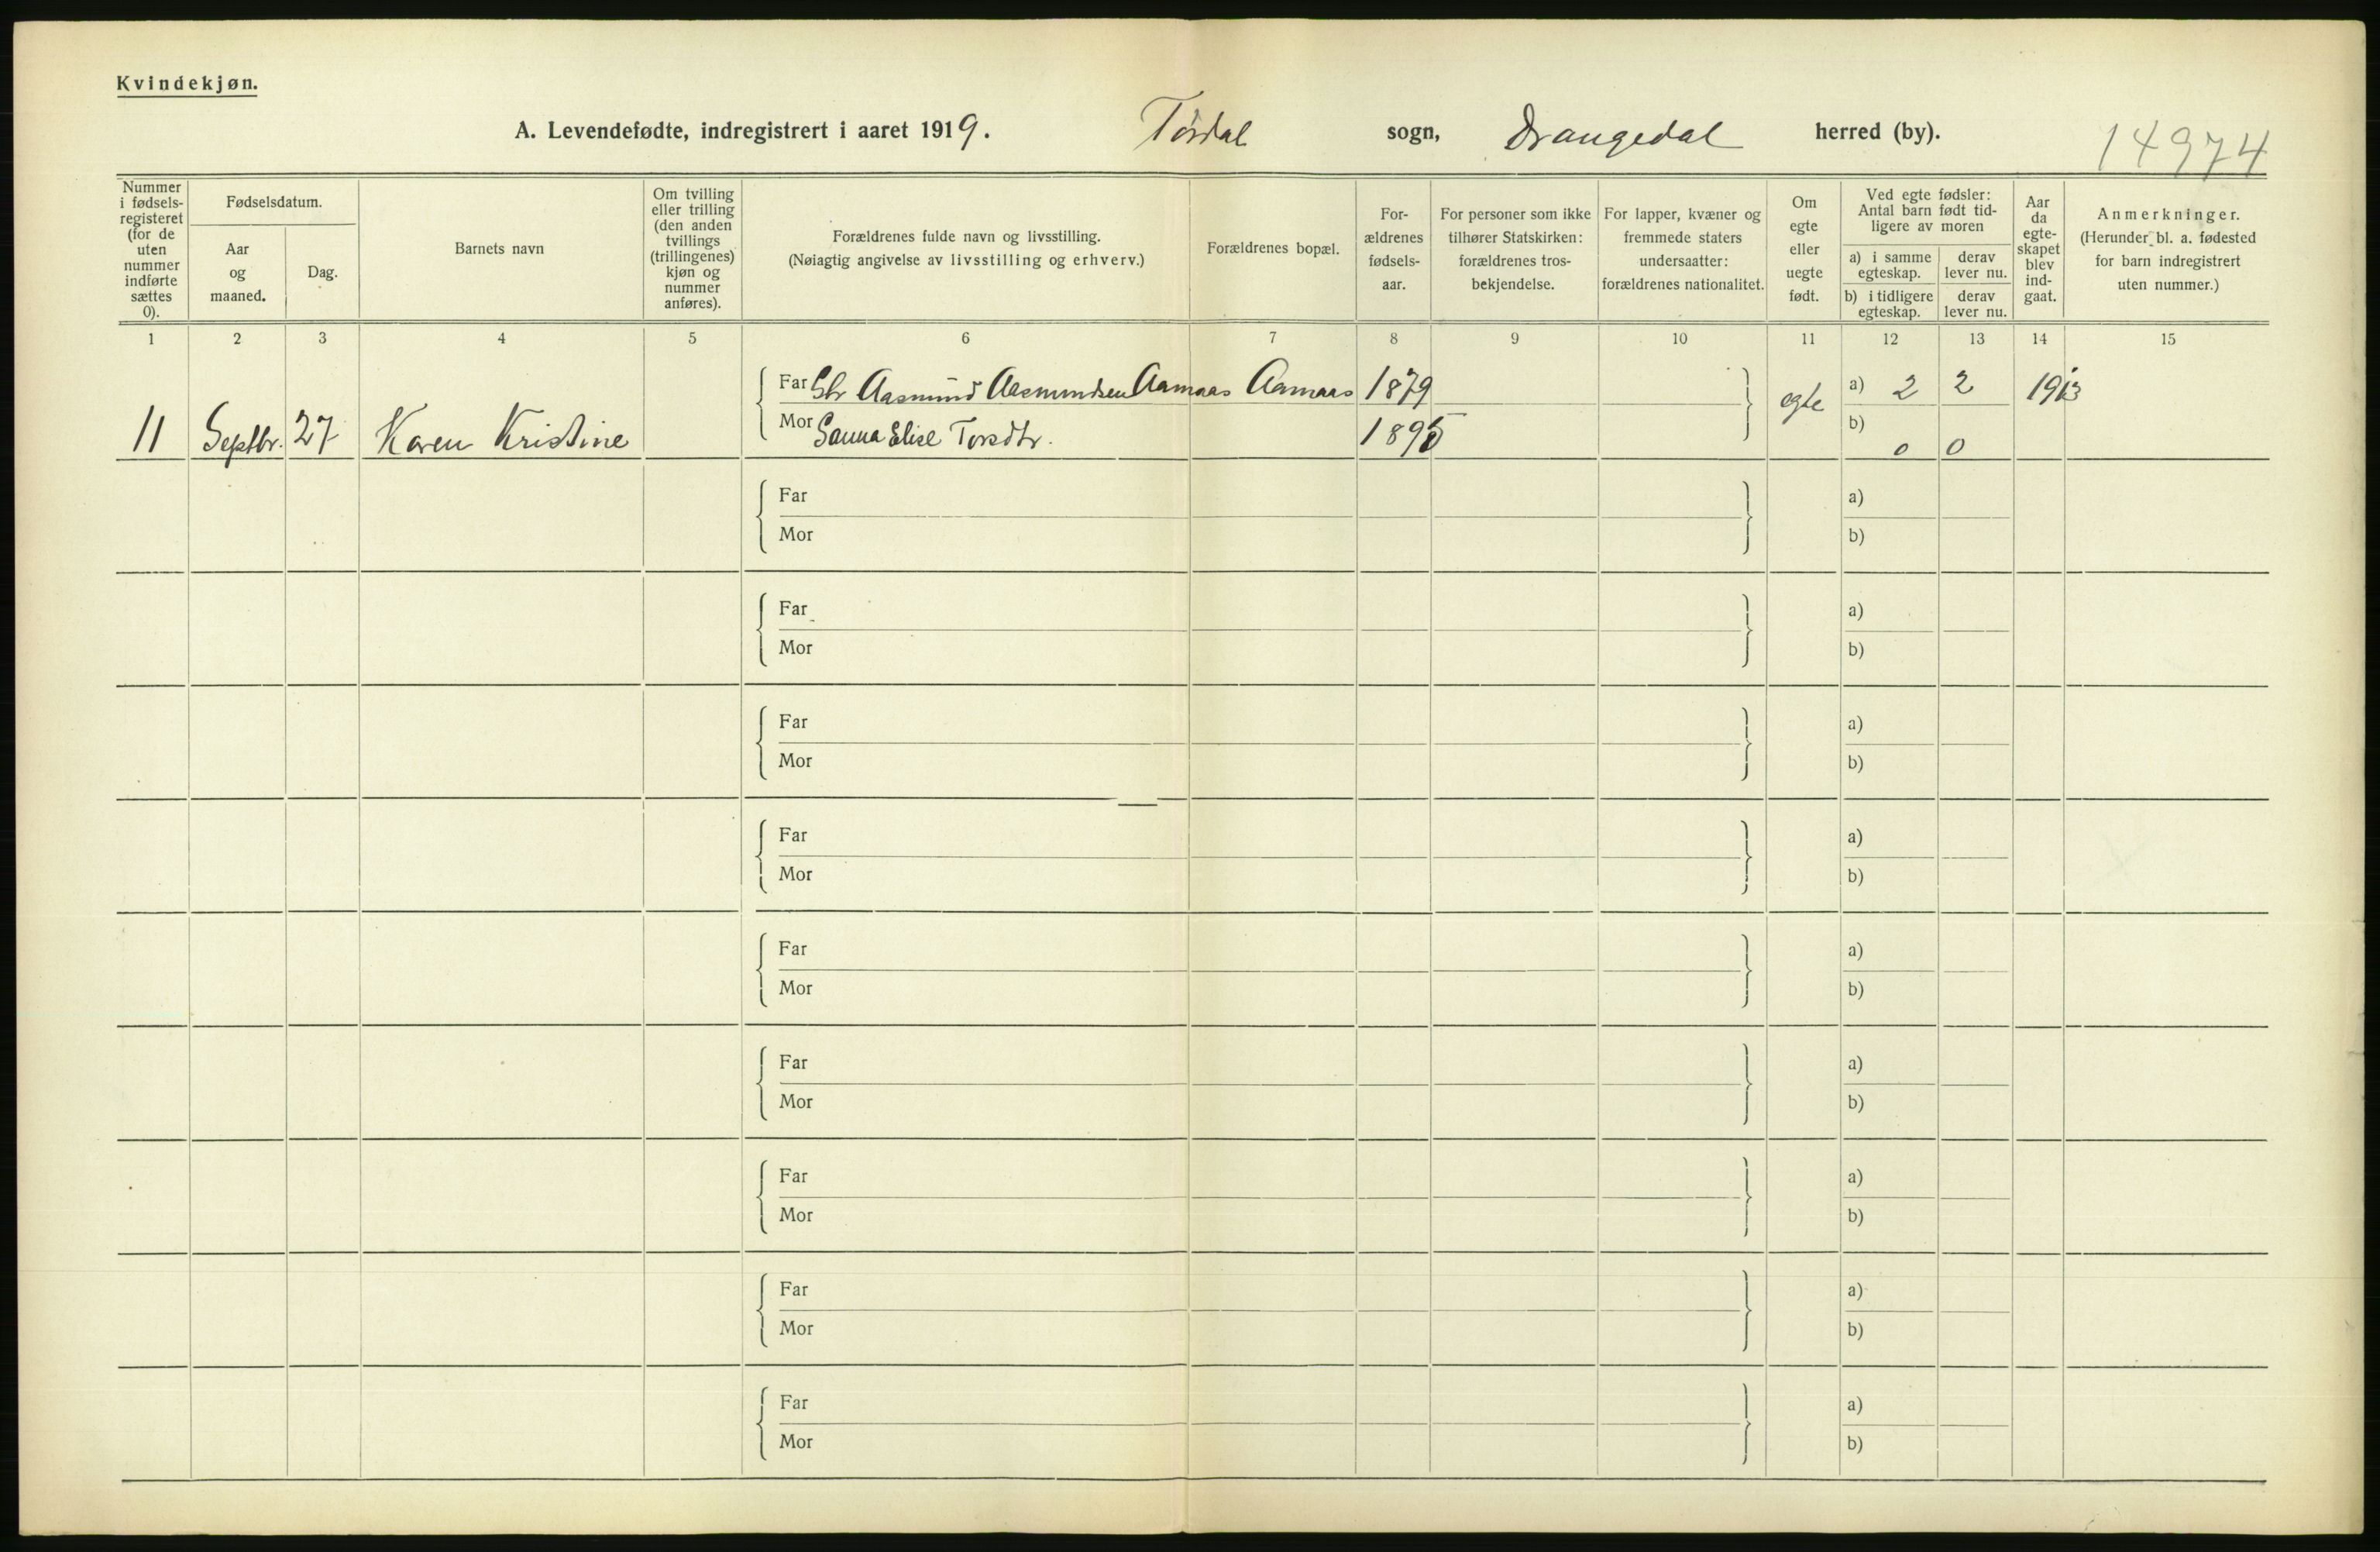 Kvindekjøn.
A. Levendefødte, indregistrert i aaret 1919. Tørdal sogn, Drangedal herred (by).
14974
Nummer i fødsels-registeret (for de uten nummer indførte sættes 0).
Fødselsdatum.
Aar og maaned.
Dag.
Barnets navn
Om tvilling eller trilling (den anden tvillings (trillingenes) kjøn og nummer anføres).
Forældrenes fulde navn og livsstilling.
(Nøiagtig angivelse av livsstilling og erhverv.)
Forældrenes bopæl.
For-ældrenes fødsels-aar.
For personer som ikke tilhører Statskirken: forældrenes tros-bekjendelse.
For lapper, kvæner og fremmede staters undersaatter: forældrenes nationalitet.
Om egte eller uegte født.
Ved egte fødsler: Antal barn født tid-ligere av moren
a) i samme egteskap.
derav lever nu.
b) i tidligere egteskap.
derav lever nu.
Aar da egte-skapet blev ind-gaat.
Anmerkninger.
(Herunder bl. a. fødested for barn indregistrert uten nummer.)
1 2 3 4 5 6 7 8 9 10 11 12 13 14 15
Far Gbr Aasmund Aasmundsen Aamaas Aamaas 1879 egte a) 2 2 1913
11 Septbr. 27 Karen Kristine Mor Sanna Elise Torsdtr. 1895 b) 0 0
Far a)
Mor b)
Far a)
Mor b)
Far a)
Mor b)
Far a)
Mor b)
Far a)
Mor b)
Far a)
Mor b)
Far a)
Mor b)
Far a)
Mor b)
Far a)
Mor b)